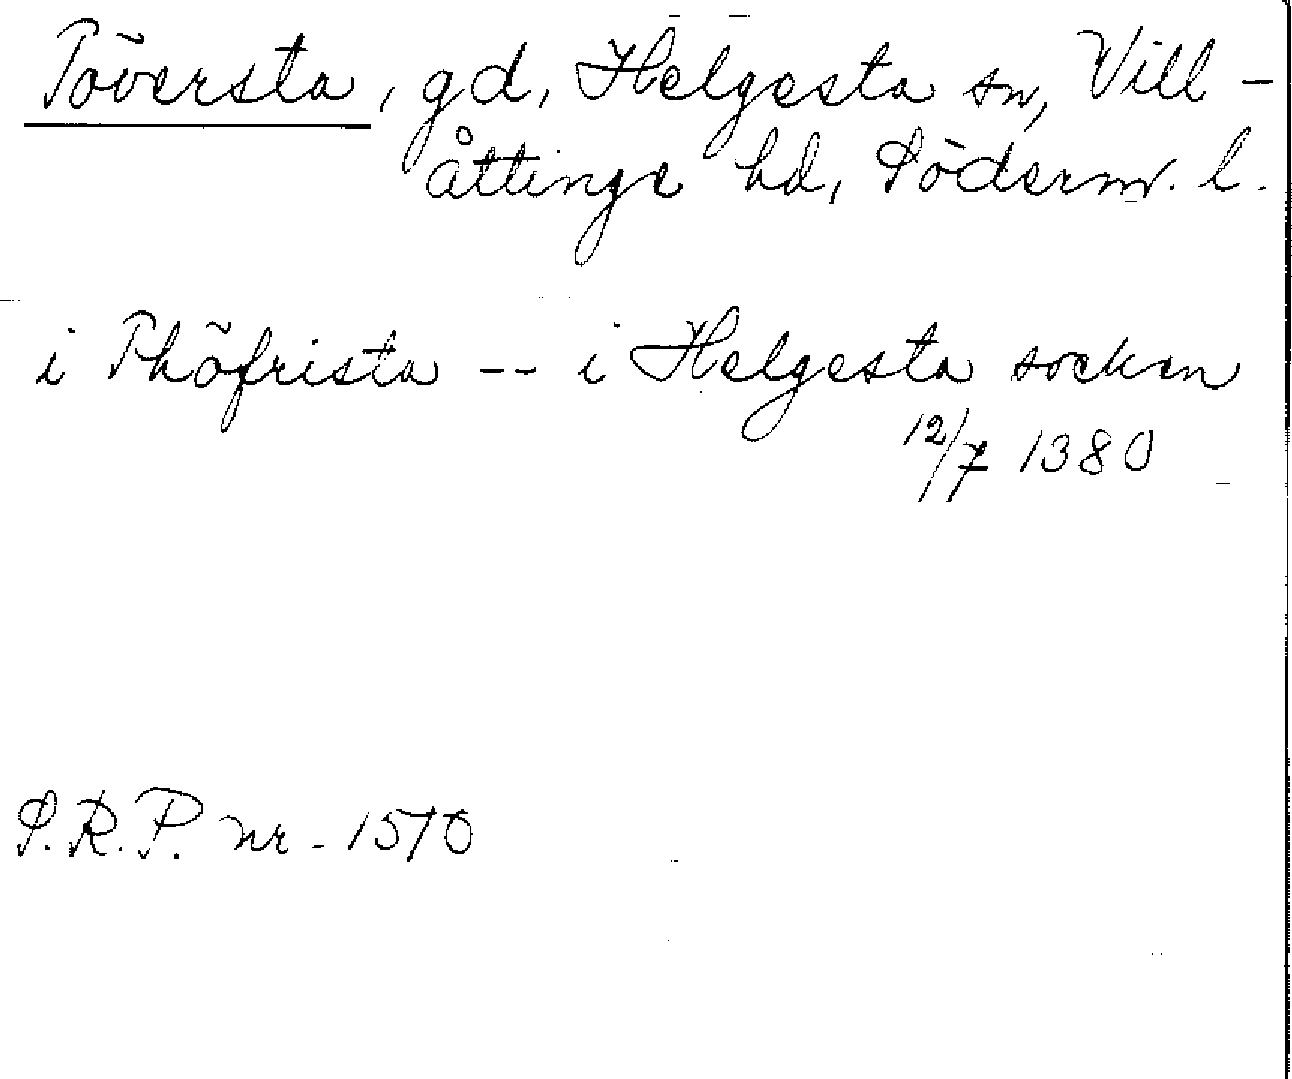 Töversta, gd, Helgesta sn, Vill-
åttinge hd, Söderm. l.
i Thöfrista -- i Helgesta socken
12/7 1380
S.R.P. nr. 1570